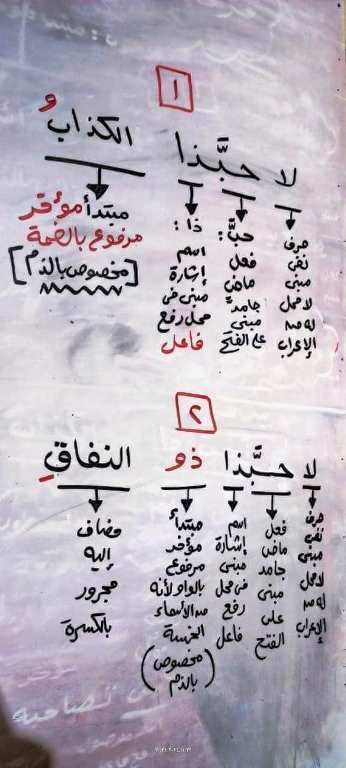 ١
لا حبَّذا الكذابُ
حرف
نفي
مبني
لا محل
له من
الإعراب
حبَّ:
فعل
ماضٍ
جامد
مبني
على الفتح
ذا:
اسم
إشارة
مبني في
محل رفع
فاعل
مبتدأ مؤخر
مرفوع بالضمة
[مخصوص بالذم]
٢
لا حبَّذا ذو النفاقِ
حرف
نفي
مبني
لا محل
له من
الإعراب
فعل
ماضٍ
جامد
مبني
على
الفتح
اسم
إشارة
مبني
في محل
رفع
فاعل
مبتدأ
مؤخر
مرفوع
بالواو لأنه
من الأسماء
الخمسة
(مخصوص
بالذم)
مضاف
إليه
مجرور
بالكسرة